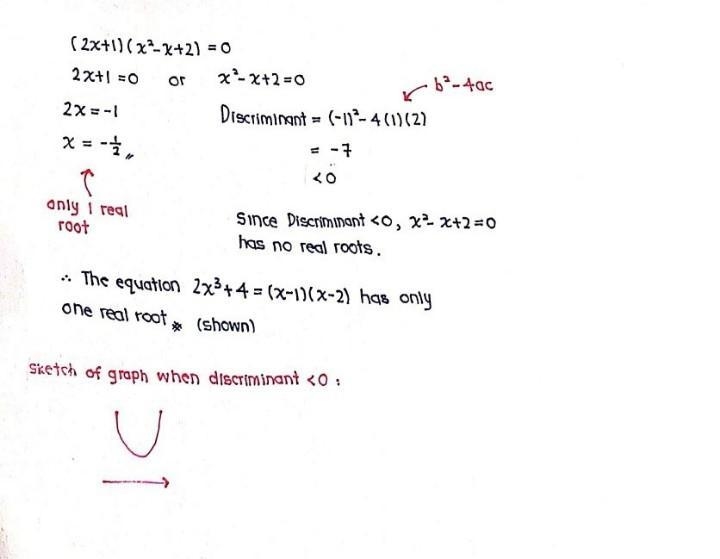 (2x+1)(x²-x+2) = 0
2x+1 = 0 or x²-x+2=0
b²-4ac
2x = -1
Discriminant = (-1)²-4(1)(2)
x = -½
= -7
<0
only 1 real
root
Since Discriminant <0, x²-x+2=0
has no real roots.
∴ The equation 2x³+4=(x-1)(x-2) has only
one real root (shown)
Sketch of graph when discriminant <0 :